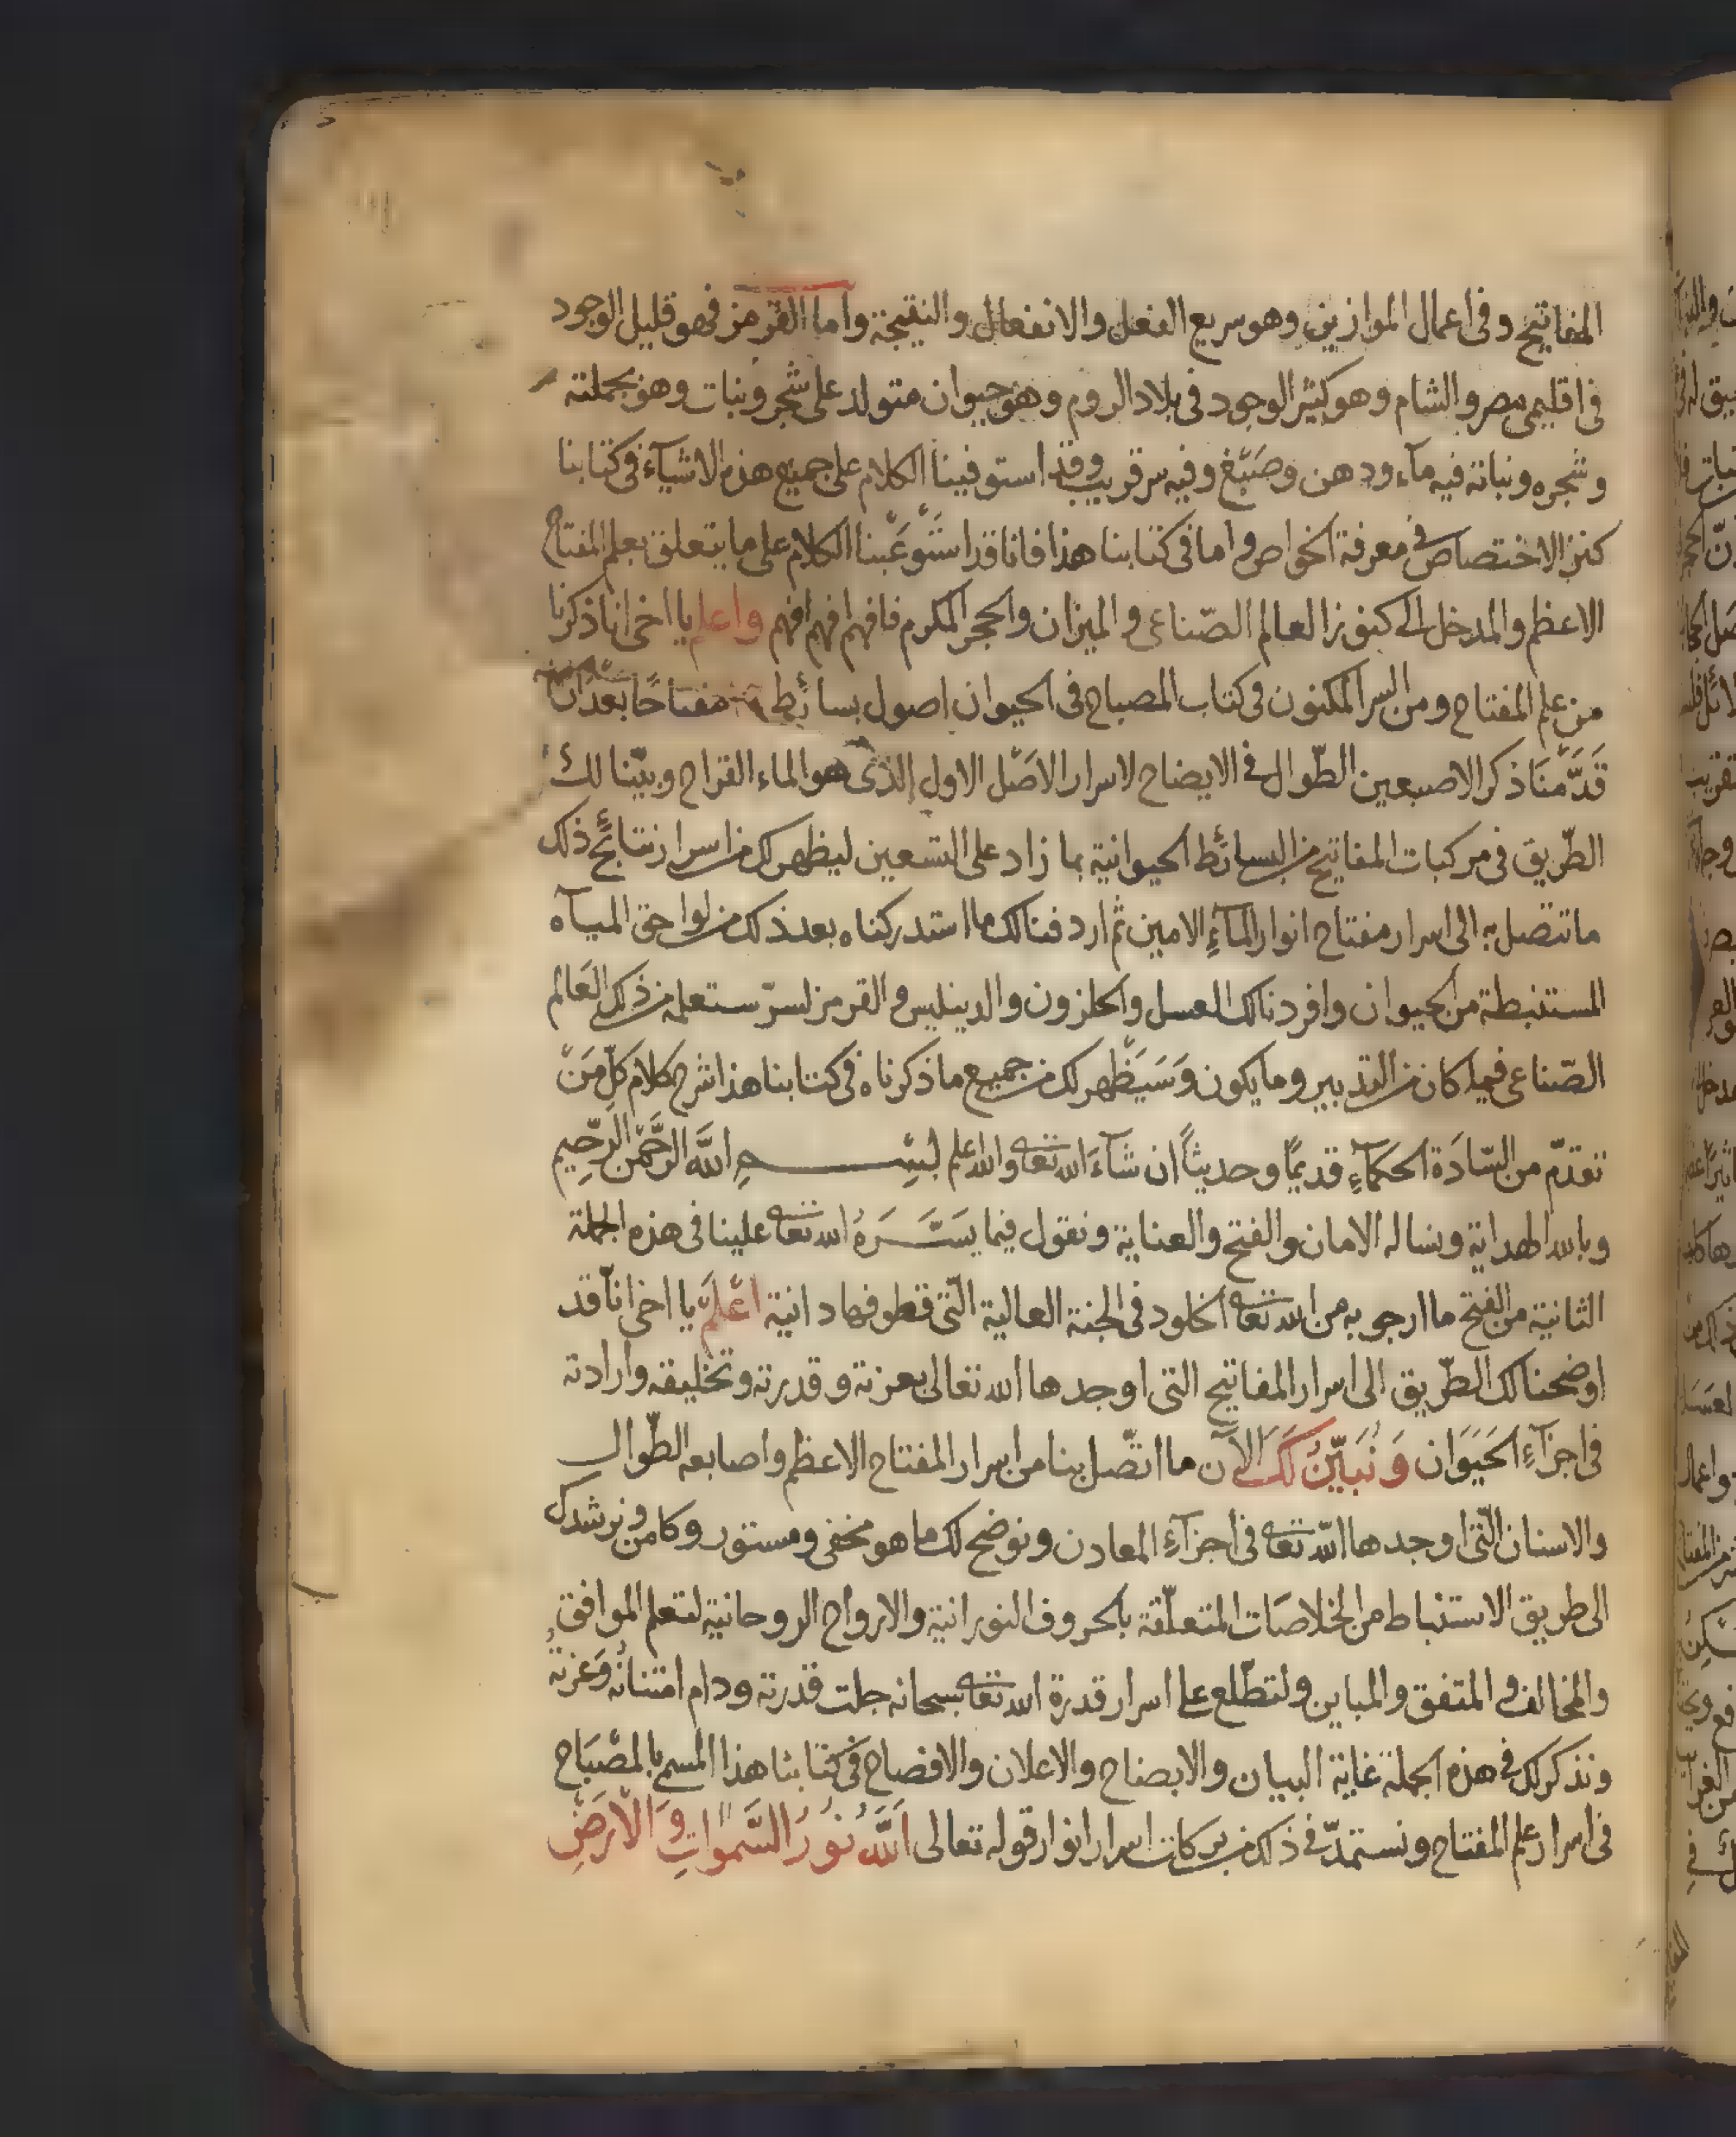 المفاتيح وفى اعمال الموازين وهو سريع الفعل والانفعال والنتيجة واما القرمز فهو قليل الوجود
فى اقليمى مصر والشام وهو كثير الوجود فى بلاد الروم وهو حيوان متولد على شجر ونبات وهو بجملته
وشجره ونباته فيه مآء ودهن وصَبْغ وفيه سر قريب وقد استوفينا الكلام على جميع هذه الاشيآء فى كتابنا
كنز الاختصاص فى معرفة الخواص واما فى كتابنا هذا فانا قد اسْتَوْعَبْنا الكلام على ما يتعلق بعلم المفتاح
الاعظم والمدخل الى كنوز العالم الصّناعى والميزان والحجر المكرم فافهم افهم افهم واعلم يا اخى انا ذكرنا
من علم المفتاح ومن السر المكنون فى كتاب المصباح فى الحيوان اصول بسائط مفتاحًا بعد ان
قَدَّمْنَا ذكر الاصبعين الطّوال فى الايضاح لاسرار الاصْل الاول الذى هو الماء القراح وبيّنا لك
الطّريق فى مركبات المفاتيح من البسائط الحيوانية بما زاد على التسعين ليظهر لك من اسرار نتائج ذلك
ما تتصل به الى اسرار مفتاح انوار المآءِ الامين ثم اردفنا لك ما استدركناه بعد ذلك من لواحق المياه
المستنبطة من الحيوان وافردنا لك العسل والحلزون والدينليس والقرمز لسرّ ستعلمه من ذلك العَالم
الصّناعى فيما كان من التدبير وما يكون وَسَيَظْهر لك من جميع ما ذكرناه فى كتابنا هذا شرح كلام كلّ مَنْ
تقدّم من السّادَة الحكمآءِ قديمًا وحديثًا ان شآءَ الله تعا والله اعلم بِسْمِ اللهِ الرَّحْمٰنِ الرَّحِيم
وبالله الهداية ونساله الامان والفتح والعناية ونقول فيما يَسَّرَهُ الله تعا علينا فى هذه الجملة
الثانية من الفتح ما ارجو به من الله تعا الخلود فى الجنة العالية الّتى قطوفها دانية اعْلَمْ يا اخى انّا قد
اوضحنا لك الطّريق الى اسرار المفاتيح التى اوجدها الله تعالى بعزته وقدرته وتخليقه وارادته
فى اجزآءِ الحَيَوَان وَنُبَيّنُ لَكَ الآن ما اتّصل بنا من اسرار المفتاح الاعظم واصابعه الطّوال
والاسنان الّتى اوجدها الله تعا فى اجزآءِ المعادن ونوضح لك ما هو مخفى ومستور وكامن ونرشدك
الى طريق الاستنباط من الخلاصَات المتعلّقة بالحروف النورانية والارواح الروحانية لتعلم الموافق
والمخالف والمتفق والمباين ولتطّلع على اسرار قدرة الله تعا سبحانه جلت قدرته ودام امتنانُه وَعزتهُ
ونذكر لك فى هذه الجملة غاية البيان والايضاح والاعلان والافصاح فى كتابنا هذا المسمى بالمصْبَاح
فى اسرار علم المفتاح ونستمدّ فى ذلك من بركات اسرار انوار قوله تعالى اَللهُ نُورُ السَّمٰواتِ وَالْاَرْضِ